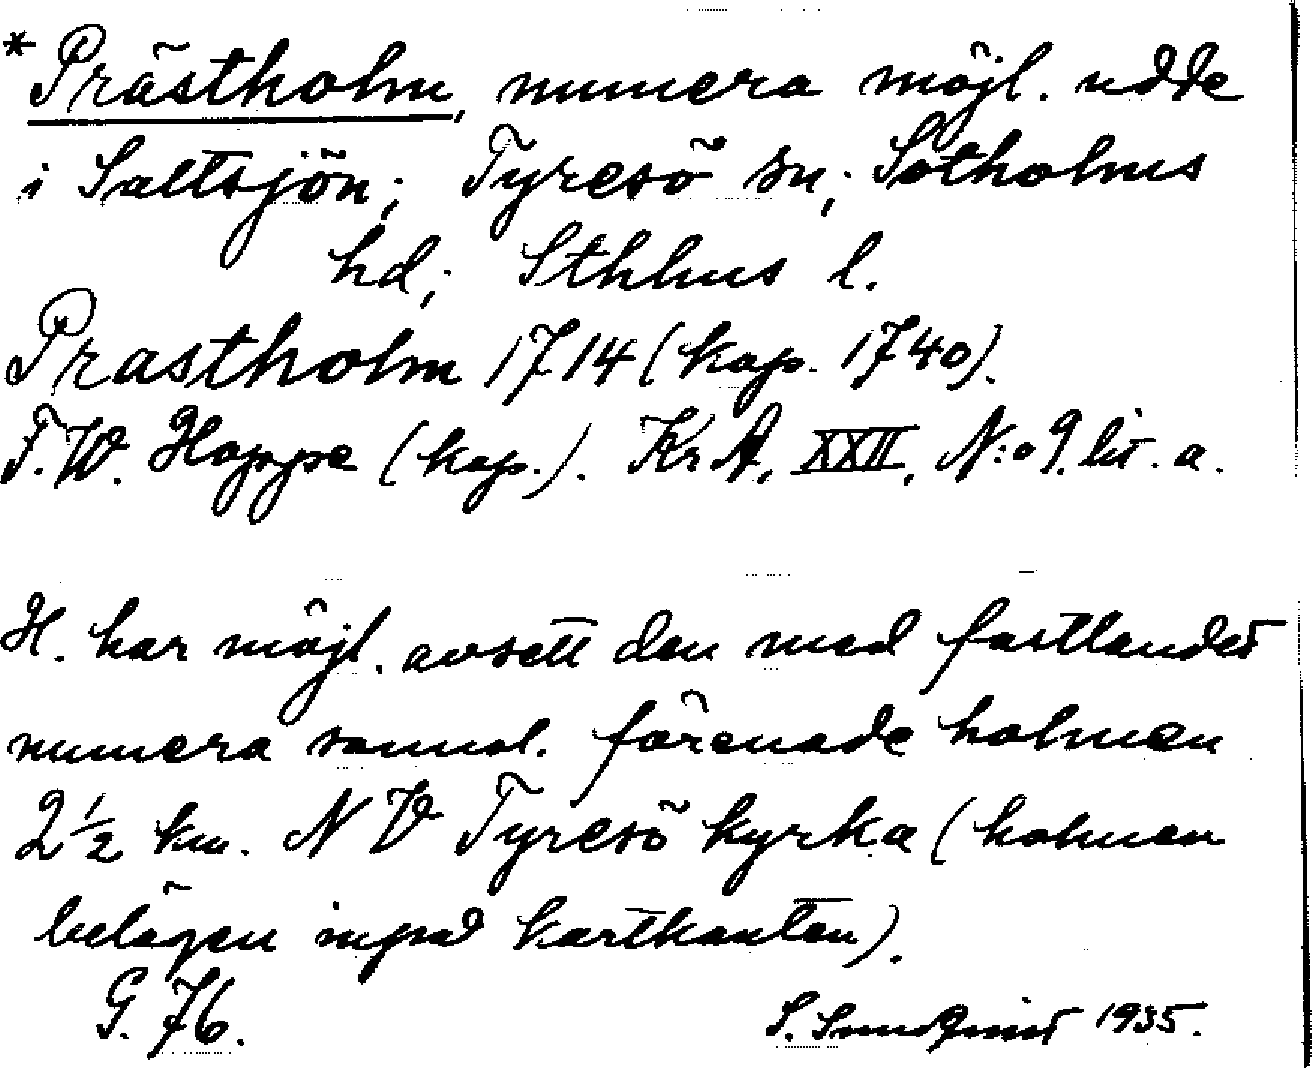 *Prästholm, numera möjl. udde
i Saltsjön; Tyresö sn; Sotholms
hd; Sthlms l.
Prastholm 1714 (kop. 1740).
F. W. Hoppe (kop.). KrA, XXII, N:o 9. lit. a.
H. har möjl. avsett den med fastlandet
numera sannol. förenade holmen
2 1/2 km. NV Tyresö kyrka (holmen
belägen inpå kartkanten).
G. 76.
S. Sundqvist 1935.